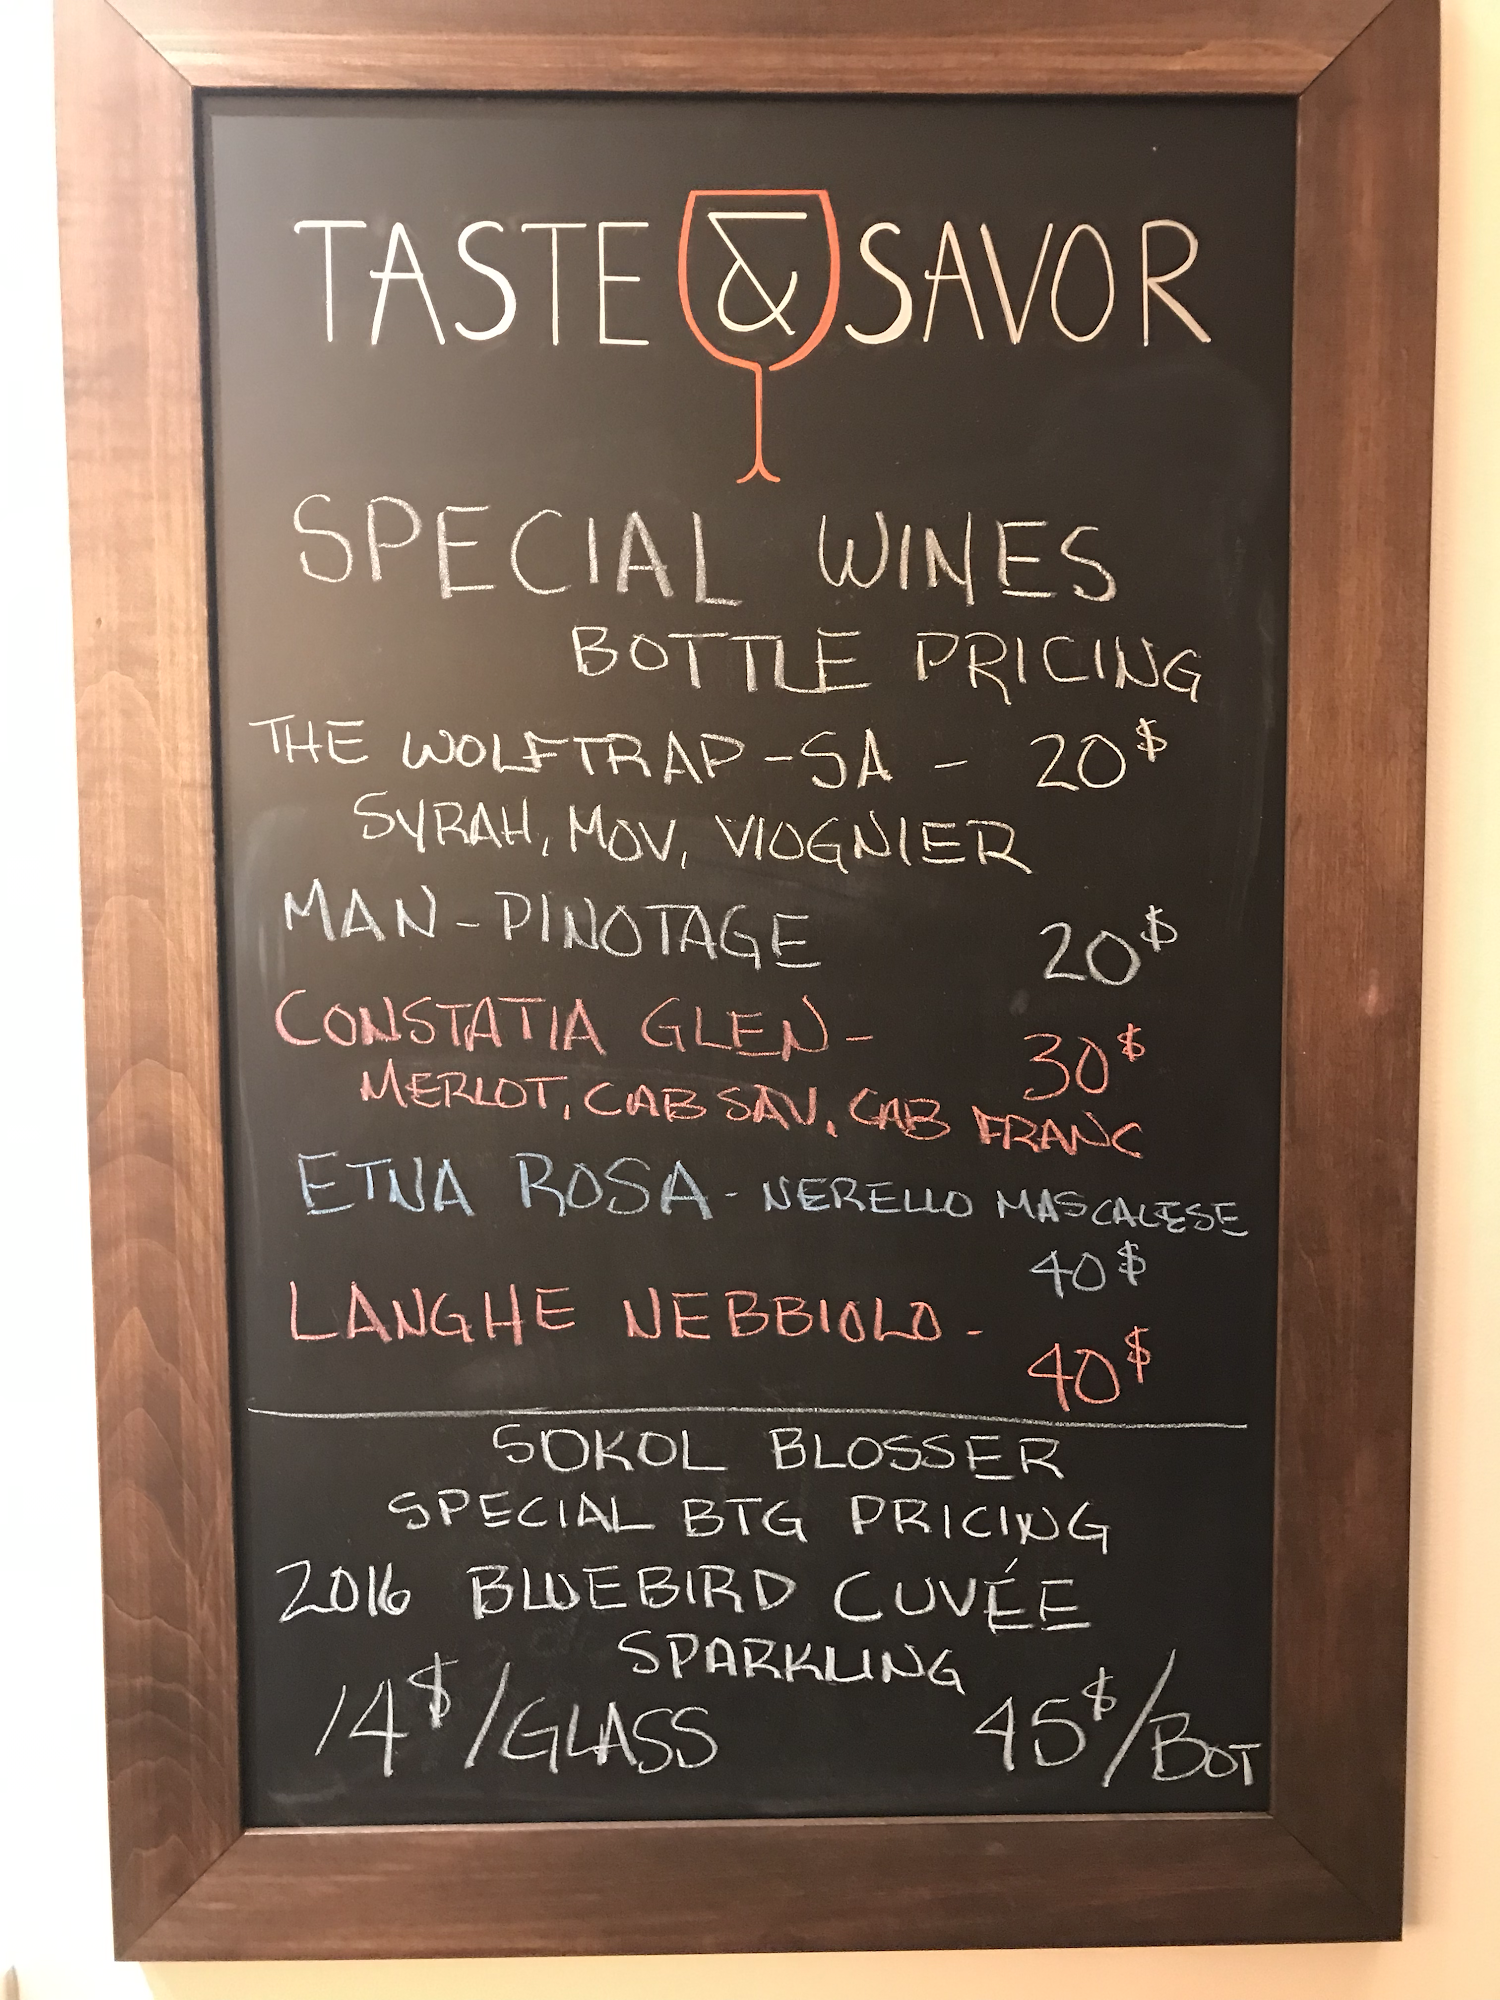 TASTE & SAVOR
SPECIAL WINES
BOTTLE PRICING
THE WOLFTRAP - SA - 20$
SYRAH, MOV, VIOGNIER
MAN - PINOTAGE 20$
CONSTATIA GLEN - 30$
MERLOT, CAB SAV, CAB FRANC
ETNA ROSA - NERELLO MASCALESE
40$
LANGHE NEBBIOLO -
40$
SOKOL BLOSSER
SPECIAL BTG PRICING
2016 BLUEBIRD CUVÉE
SPARKLING
14$/GLASS 45$/BOT